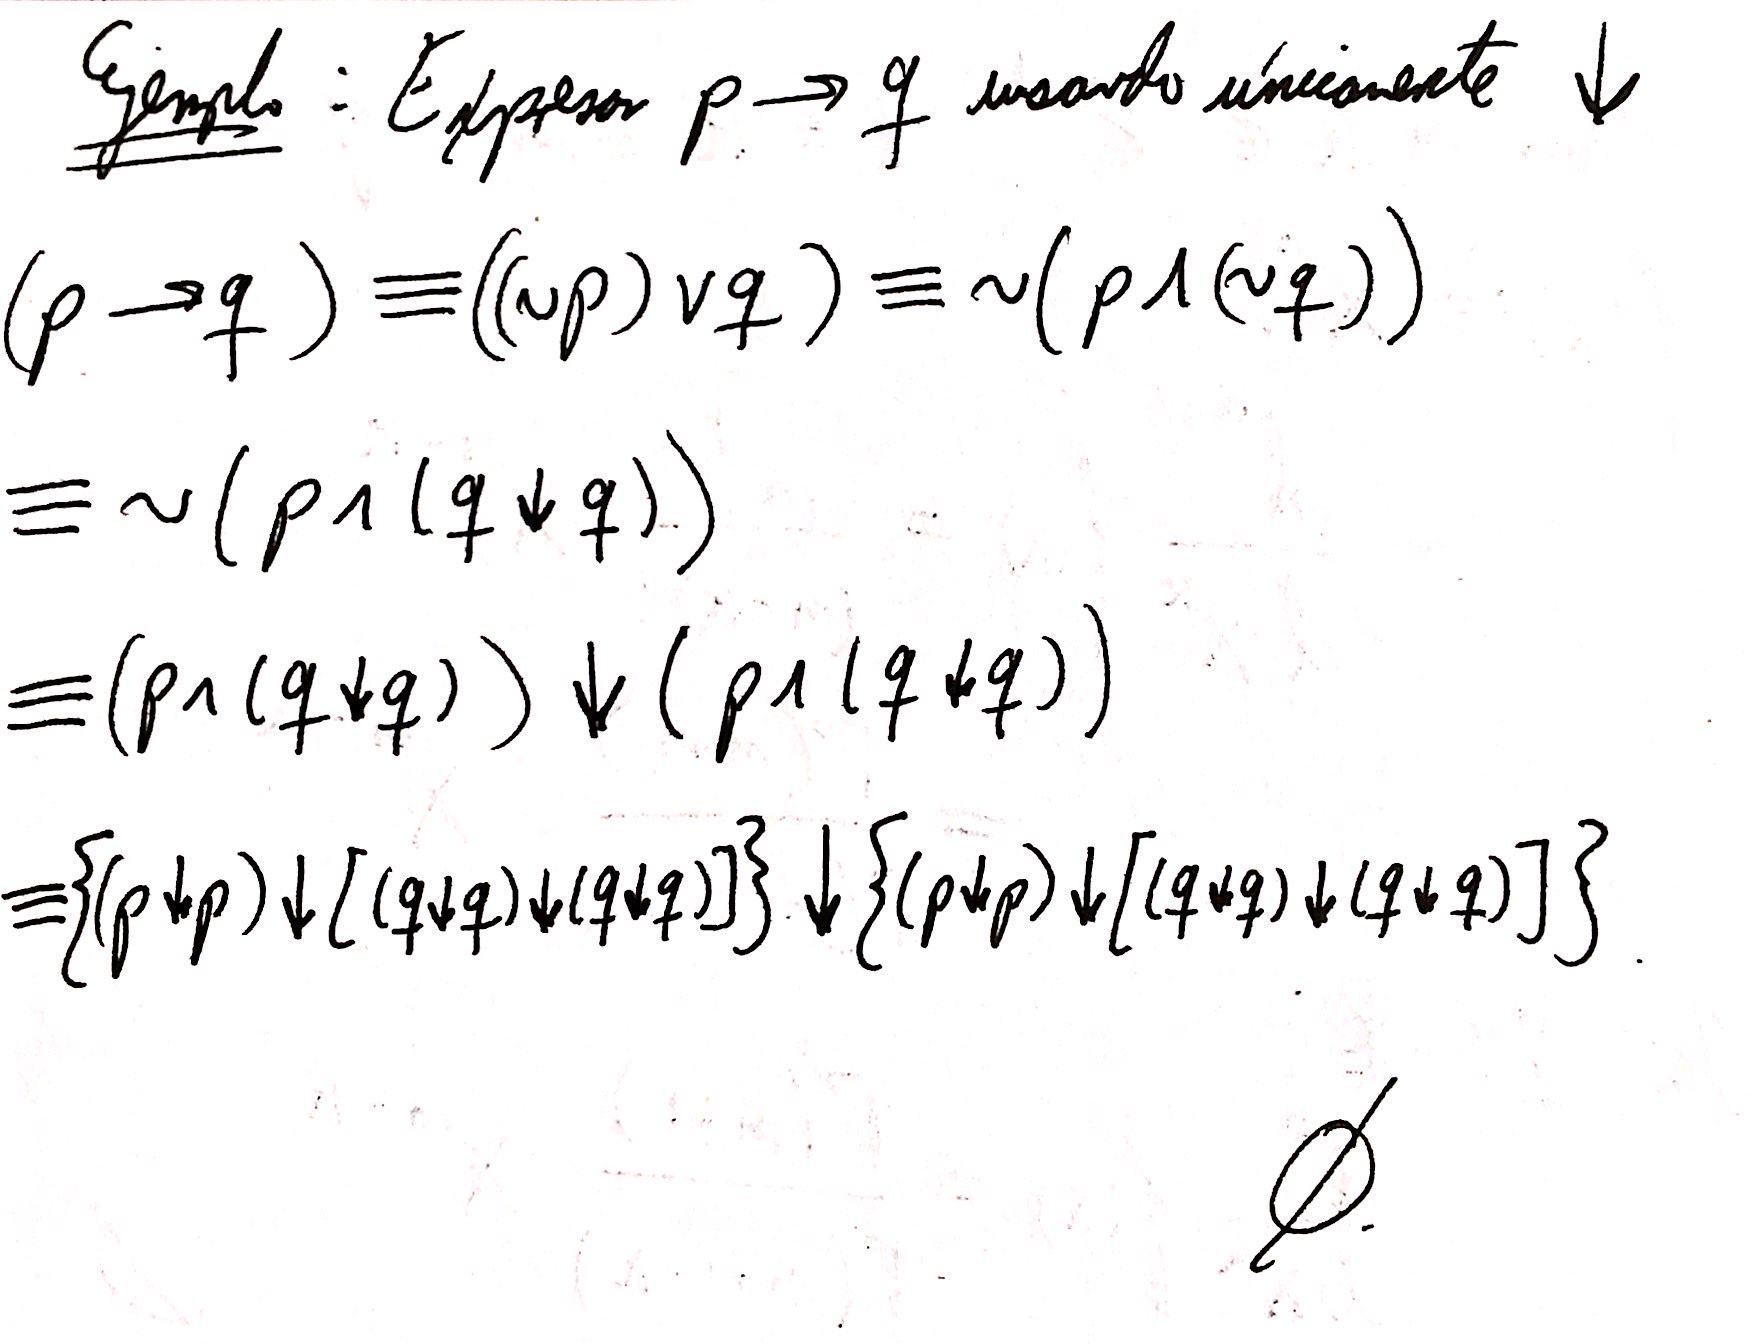 Ejemplo : Expresar p → q usando únicamente ↓
(p → q) ≡ ((~p) ∨ q) ≡ ~(p ∧ (~q))
≡ ~(p ∧ (q ↓ q))
≡ (p ∧ (q ↓ q)) ↓ (p ∧ (q ↓ q))
≡ {(p ↓ p) ↓ [(q ↓ q) ↓ (q ↓ q)]} ↓ {(p ↓ p) ↓ [(q ↓ q) ↓ (q ↓ q)]} .
∅.